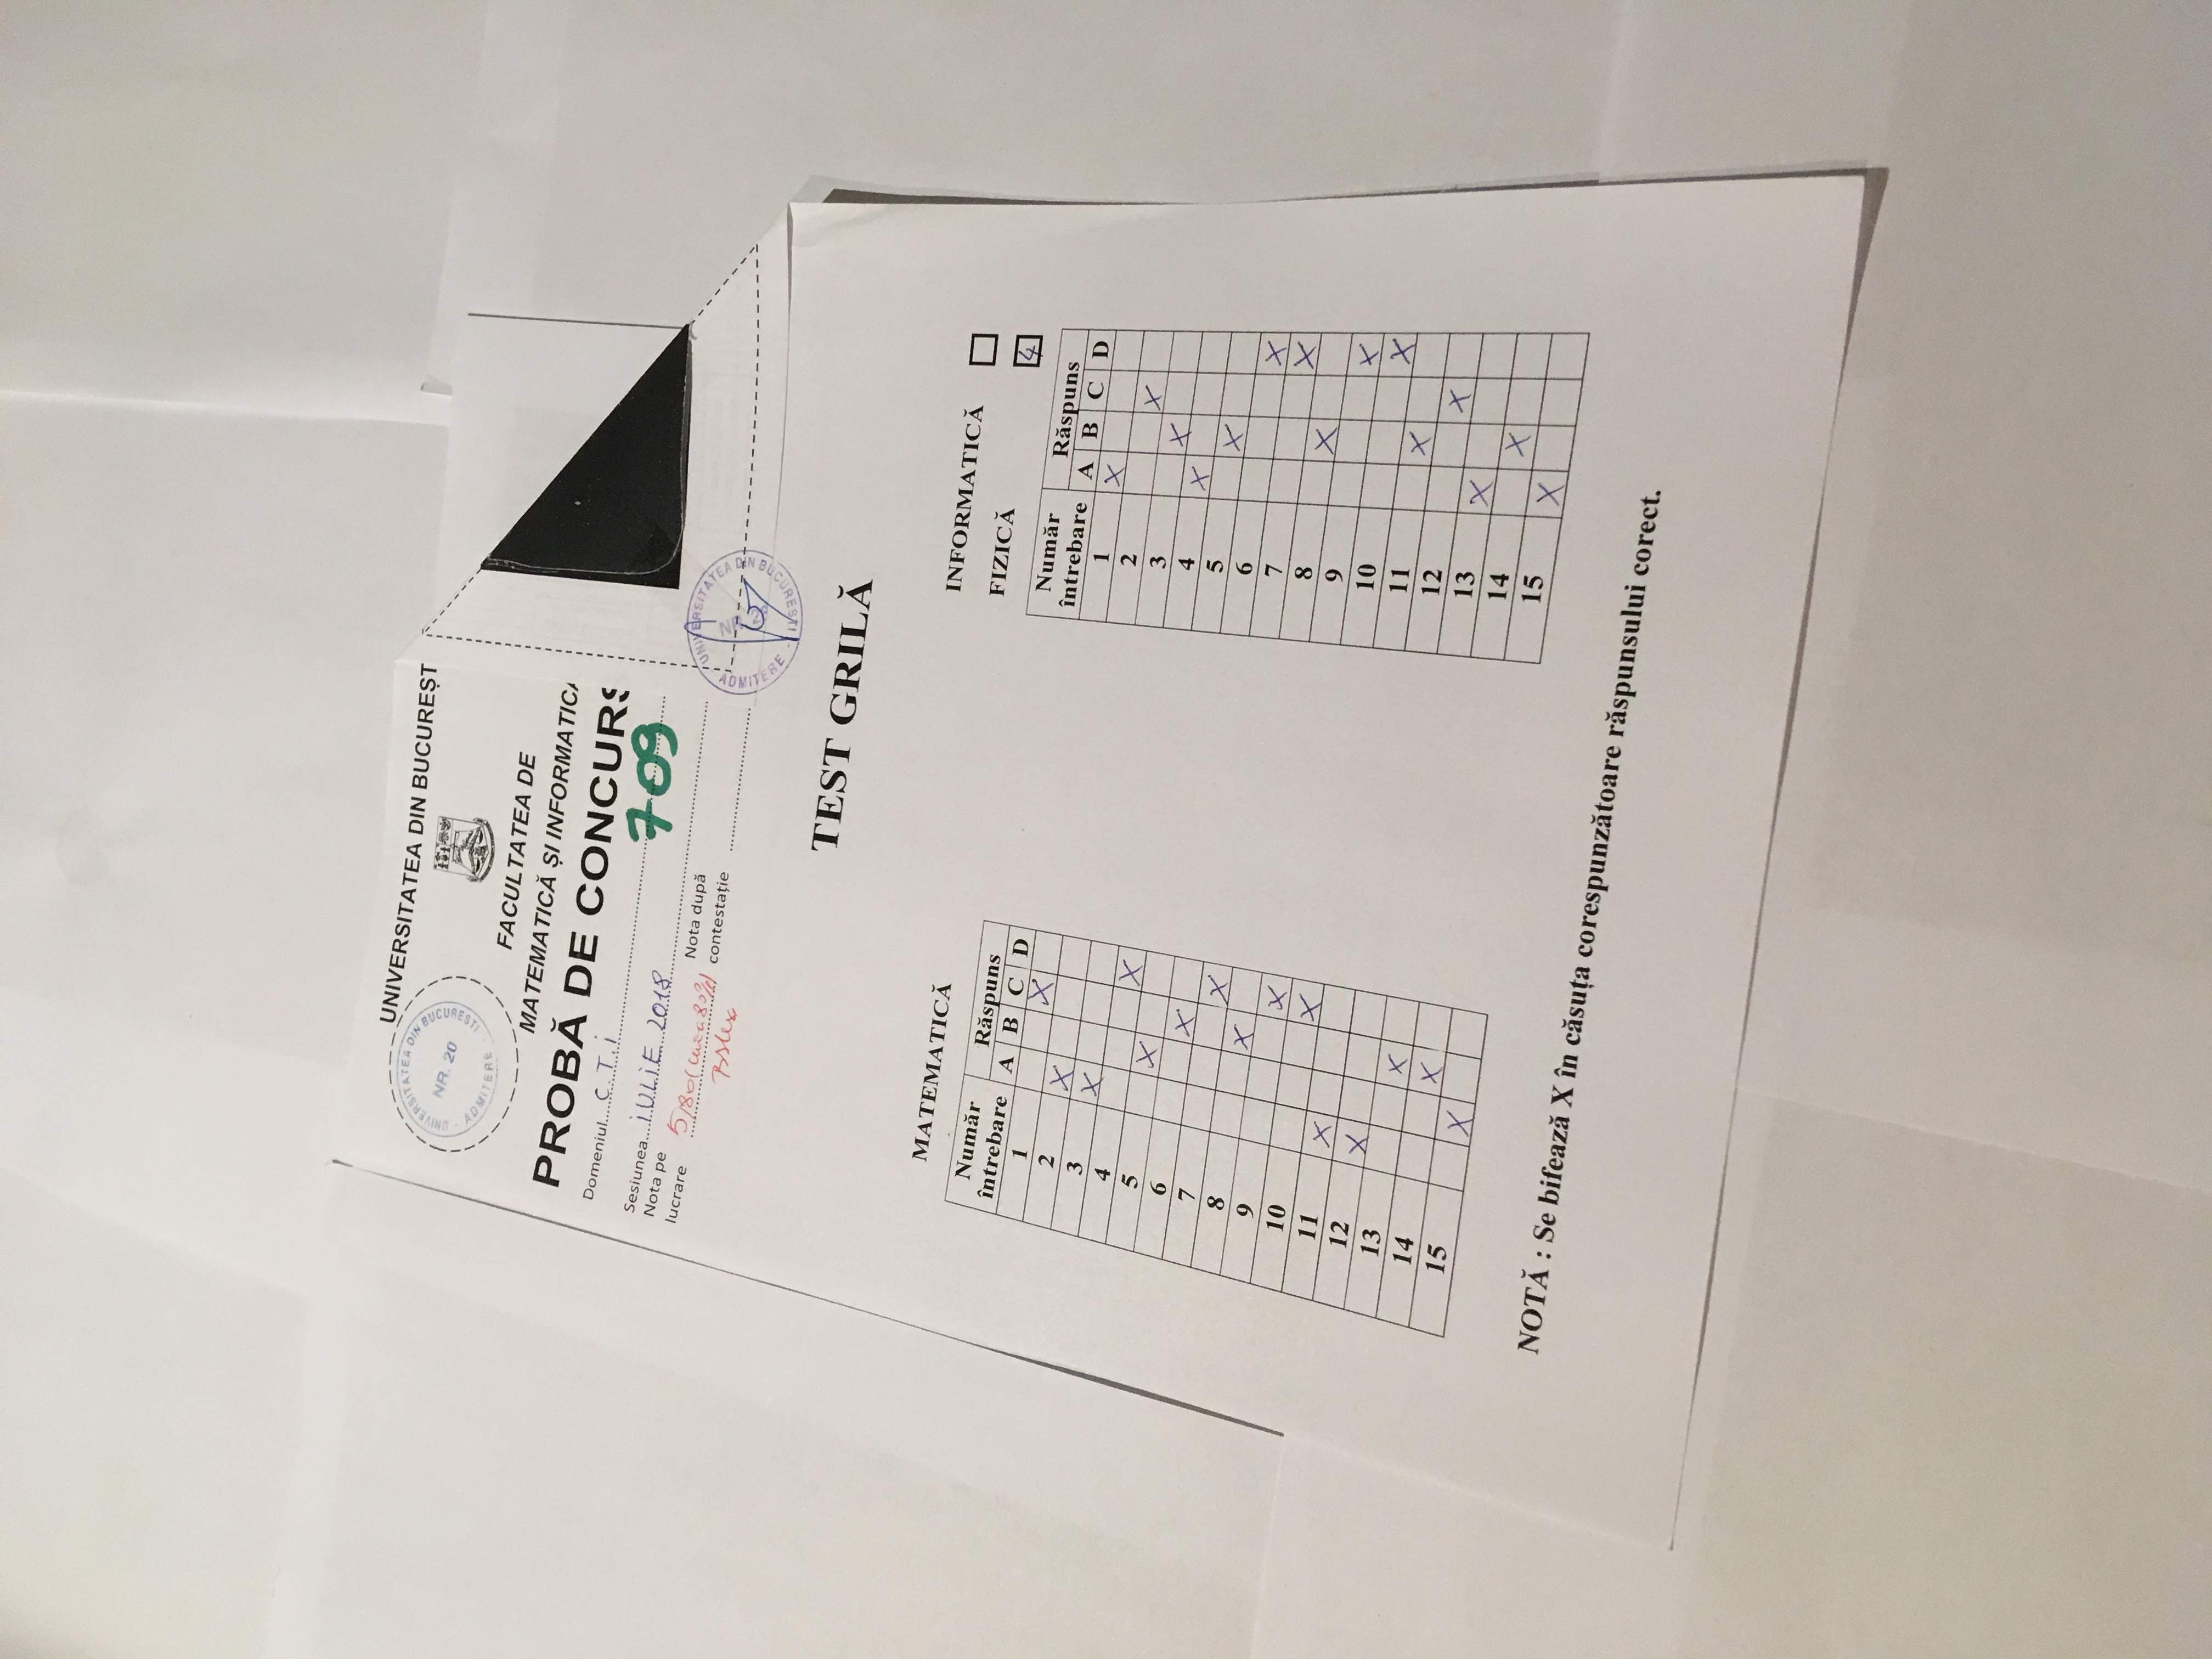 UNIVERSITATEA DIN BUCUREȘT
UNIVERSITATEA DIN BUCURESTI
NR. 20
ADMITERE
FACULTATEA DE
MATEMATICĂ ȘI INFORMATICA
PROBĂ DE CONCURS
Domeniul C.T.i
Sesiunea iULiE 2018
709
Nota pe lucrare 5/80
Nota după contestație
UNIVERSITATEA DIN BUCURESTI
ADMITERE
TEST GRILĂ
MATEMATICĂ
Număr întrebare Răspuns
A B C D
1 X
2 X
3 X
4 X
5 X
6 X
7 X
8 X
9 X
10 X
11 X
12 X
13 X
14 X
15 X
INFORMATICĂ
FIZICĂ 4
Număr întrebare Răspuns
A B C D
1 X
2 X
3 X
4 X
5 X
6 X
7 X
8 X
9 X
10 X
11 X
12 X
13 X
14 X
15 X
NOTĂ : Se bifează X în căsuța corespunzătoare răspunsului corect.